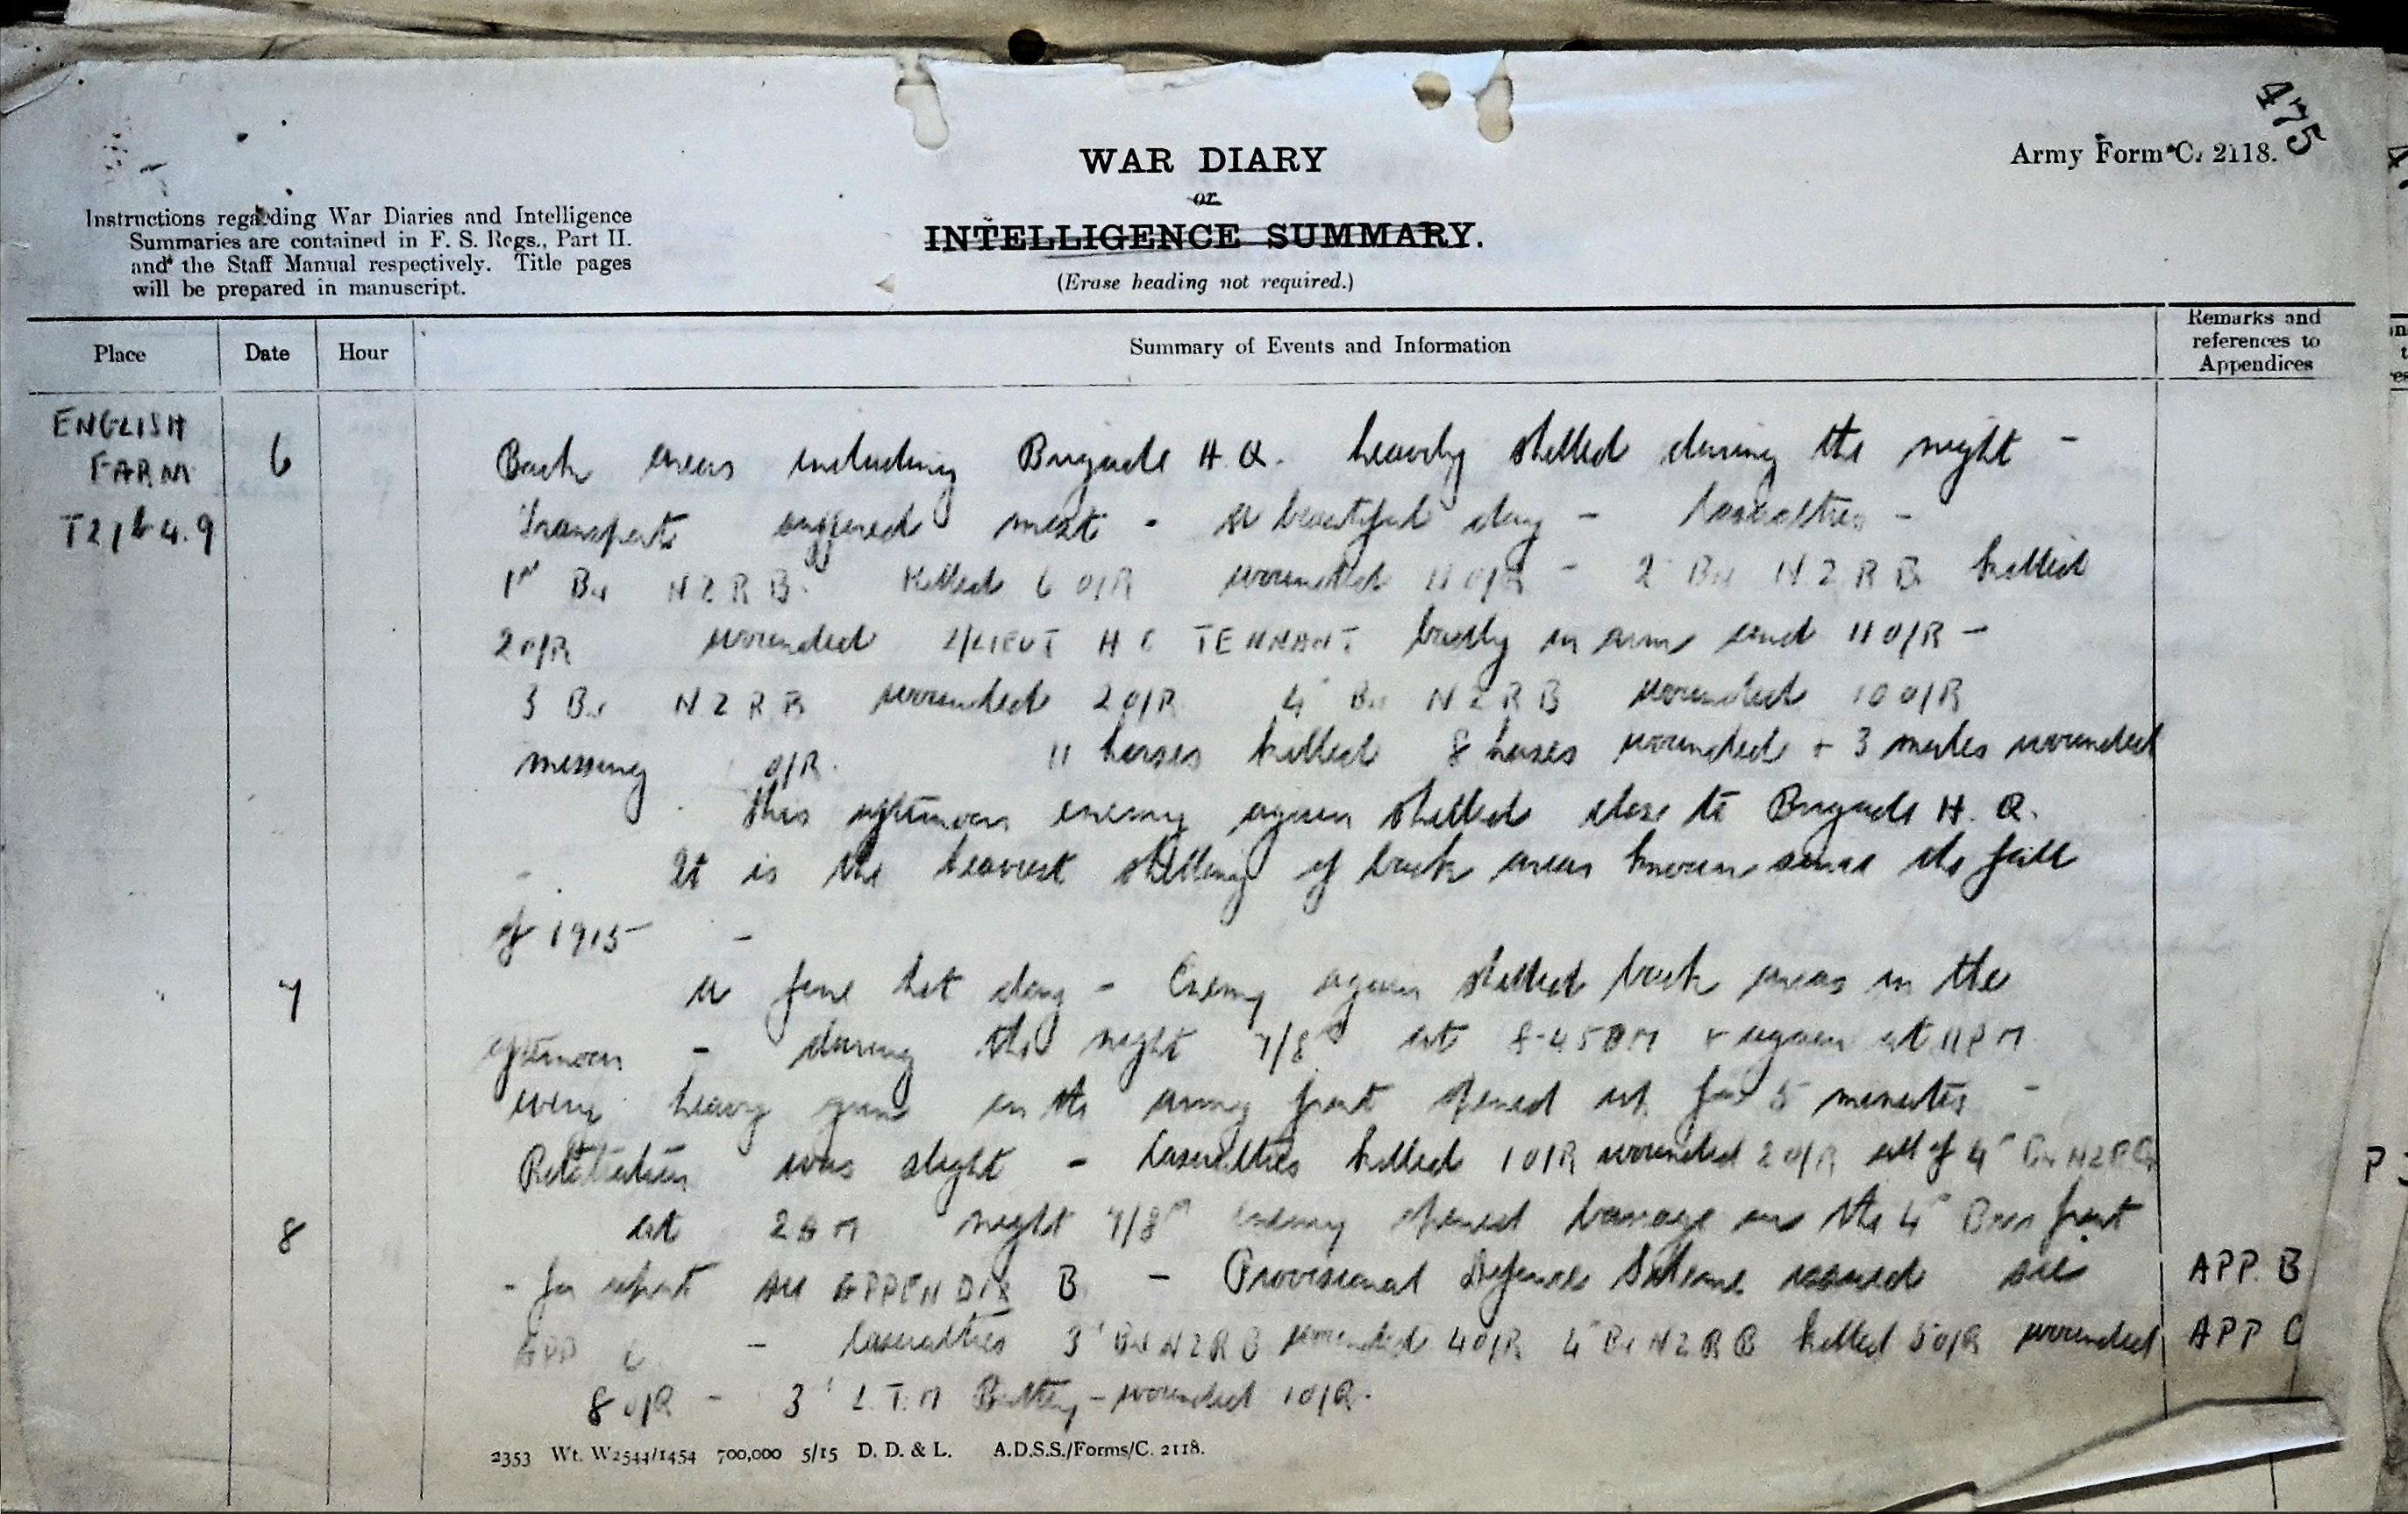 475
WAR DIARY
or
INTELLIGENCE SUMMARY.
(Erase heading not required.)
Army Form C. 2118.
Instructions regarding War Diaries and Intelligence
Summaries are contained in F. S. Regs., Part II.
and the Staff Manual respectively. Title pages
will be prepared in manuscript.
Place Date Hour Summary of Events and Information Remarks and references to Appendices
ENGLISH
FARM
T 4.9
6 Back areas including Brigade H.Q. heavily shelled during the night -
Transport suffered most - a beautiful day - Casualties -
1st Bn N Z R B. Killed 6 O/R wounded 11 O/R - 2 Bn N Z R B killed
2 O/R wounded 2/LIEUT H C TENNANT badly in arm and 11 O/R -
3 Bn N Z R B wounded 2 O/R 4 Bn N Z R B wounded 10 O/R
missing 1 O/R. 11 horses killed 8 horses wounded + 3 mules wounded
This afternoon enemy again shelled close to Brigade H. Q.
It is the heaviest shelling of back areas known since the fall
of 1915 -
7 A fine hot day - Enemy again shelled back areas in the
afternoon - during the night 7/8 at 8-45 PM + again at 11 PM
every heavy gun on the army front opened up for 5 minutes -
Retaliation was slight - Casualties killed 1 O/R wounded 2 O/R all of 4 Bn N Z R B
8 at 2 AM night 7/8th enemy opened barrage on the 4 Bns front
- for report see APPENDIX B - Provisional Defence Scheme issued see APP. B
APP C - Casualties 3 Bn N Z R B wounded 4 O/R 4 Bn N Z R B killed 5 O/R wounded APP C
8 O/R - 3 L.T.M Battery - wounded 1 O/R.
2353 Wt. W2544/1454 700,000 5/15 D. D. & L. A.D.S.S./Forms/C. 2118.